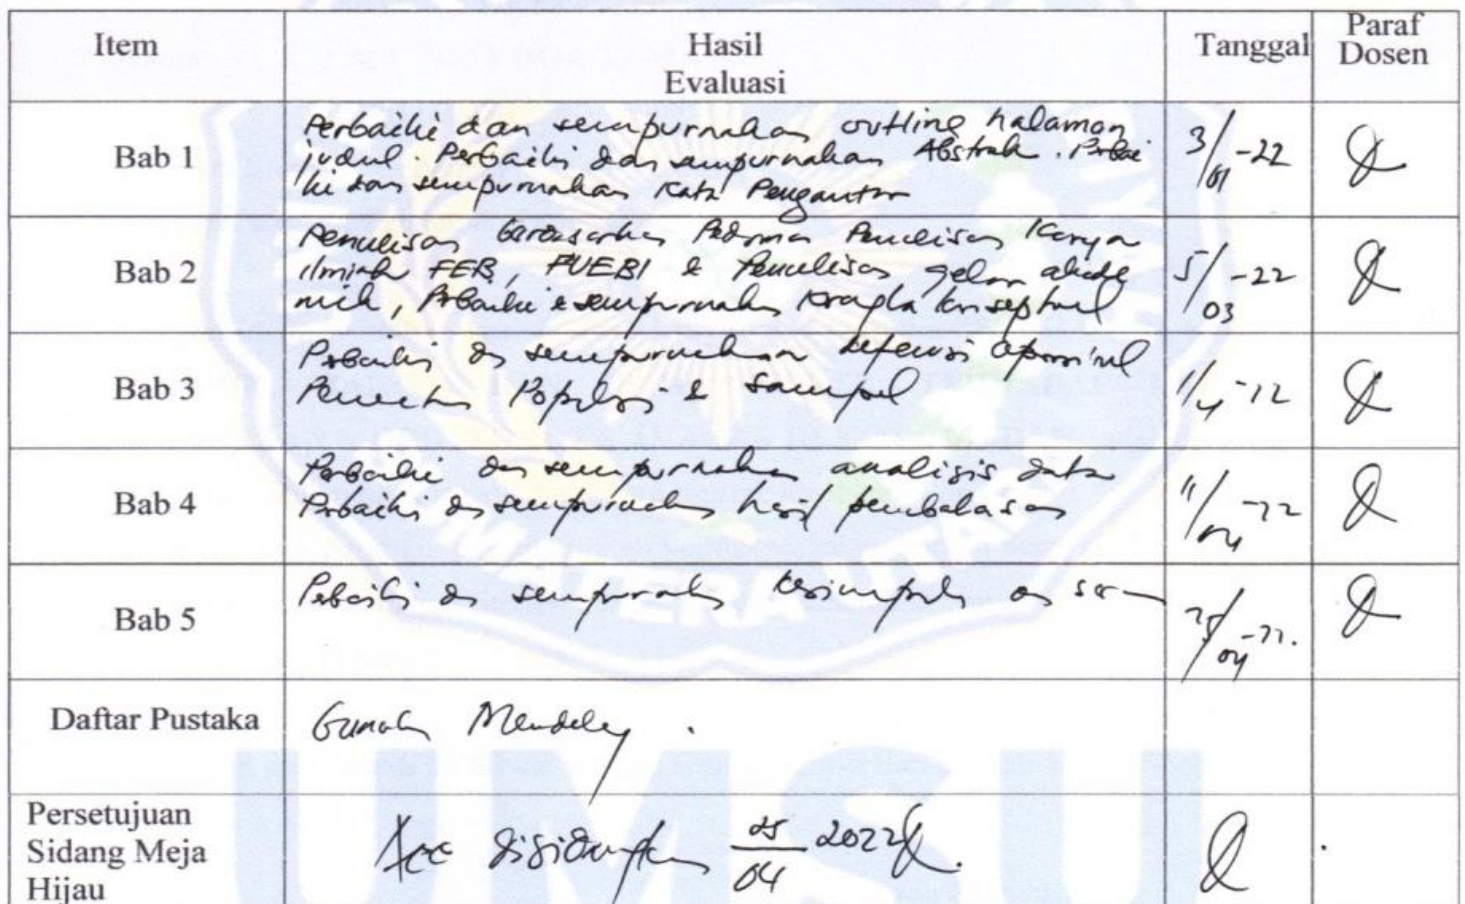 Item Hasil Evaluasi Tanggal Paraf Dosen
Bab 1
Perbaiki dan sempurnakan outline halaman
judul. Perbaiki dan sempurnakan Abstrak. Perbai
ki dan sempurnakan Kata Pengantar
3/01-22
Bab 2
Penulisan berdasarkan Pedoman Penulisan Karya
ilmiah FEB, PUEBI & Penulisan gelar akade
mik, Perbaiki & sempurnakan kerangka konseptual
5/03-22
Bab 3
Perbaiki dan sempurnakan
Populasi & Sampel
Bab 4
Perbaiki dan sempurnakan analisis data
Perbaiki dan sempurnakan hasil pembahasan
11/04-22
Bab 5
Perbaiki dan sempurnakan kesimpulan dan saran
25/04-22.
Daftar Pustaka
Gunakan Mendeley.
Persetujuan
Sidang Meja
Hijau
Acc disidangkan 25/04 2022
MATERA UTARA
UMSU